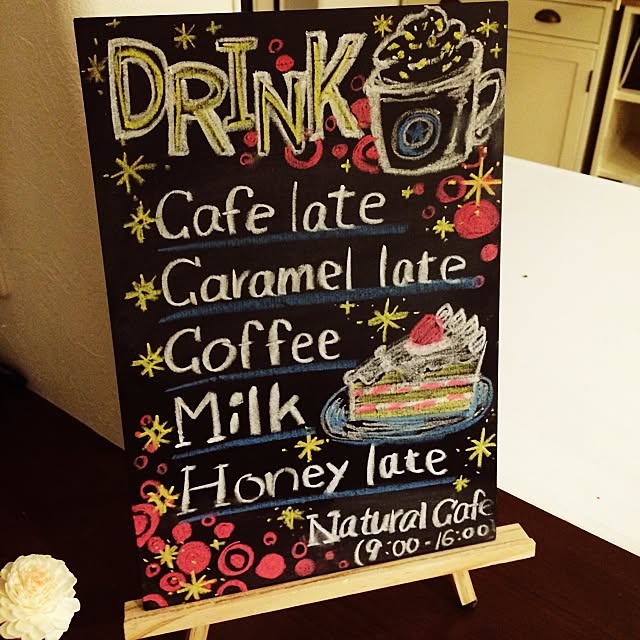 DRINK
Cafe late
Caramel late
Coffee
Milk
Honey late
Natural Cafe
(9:00-16:00)